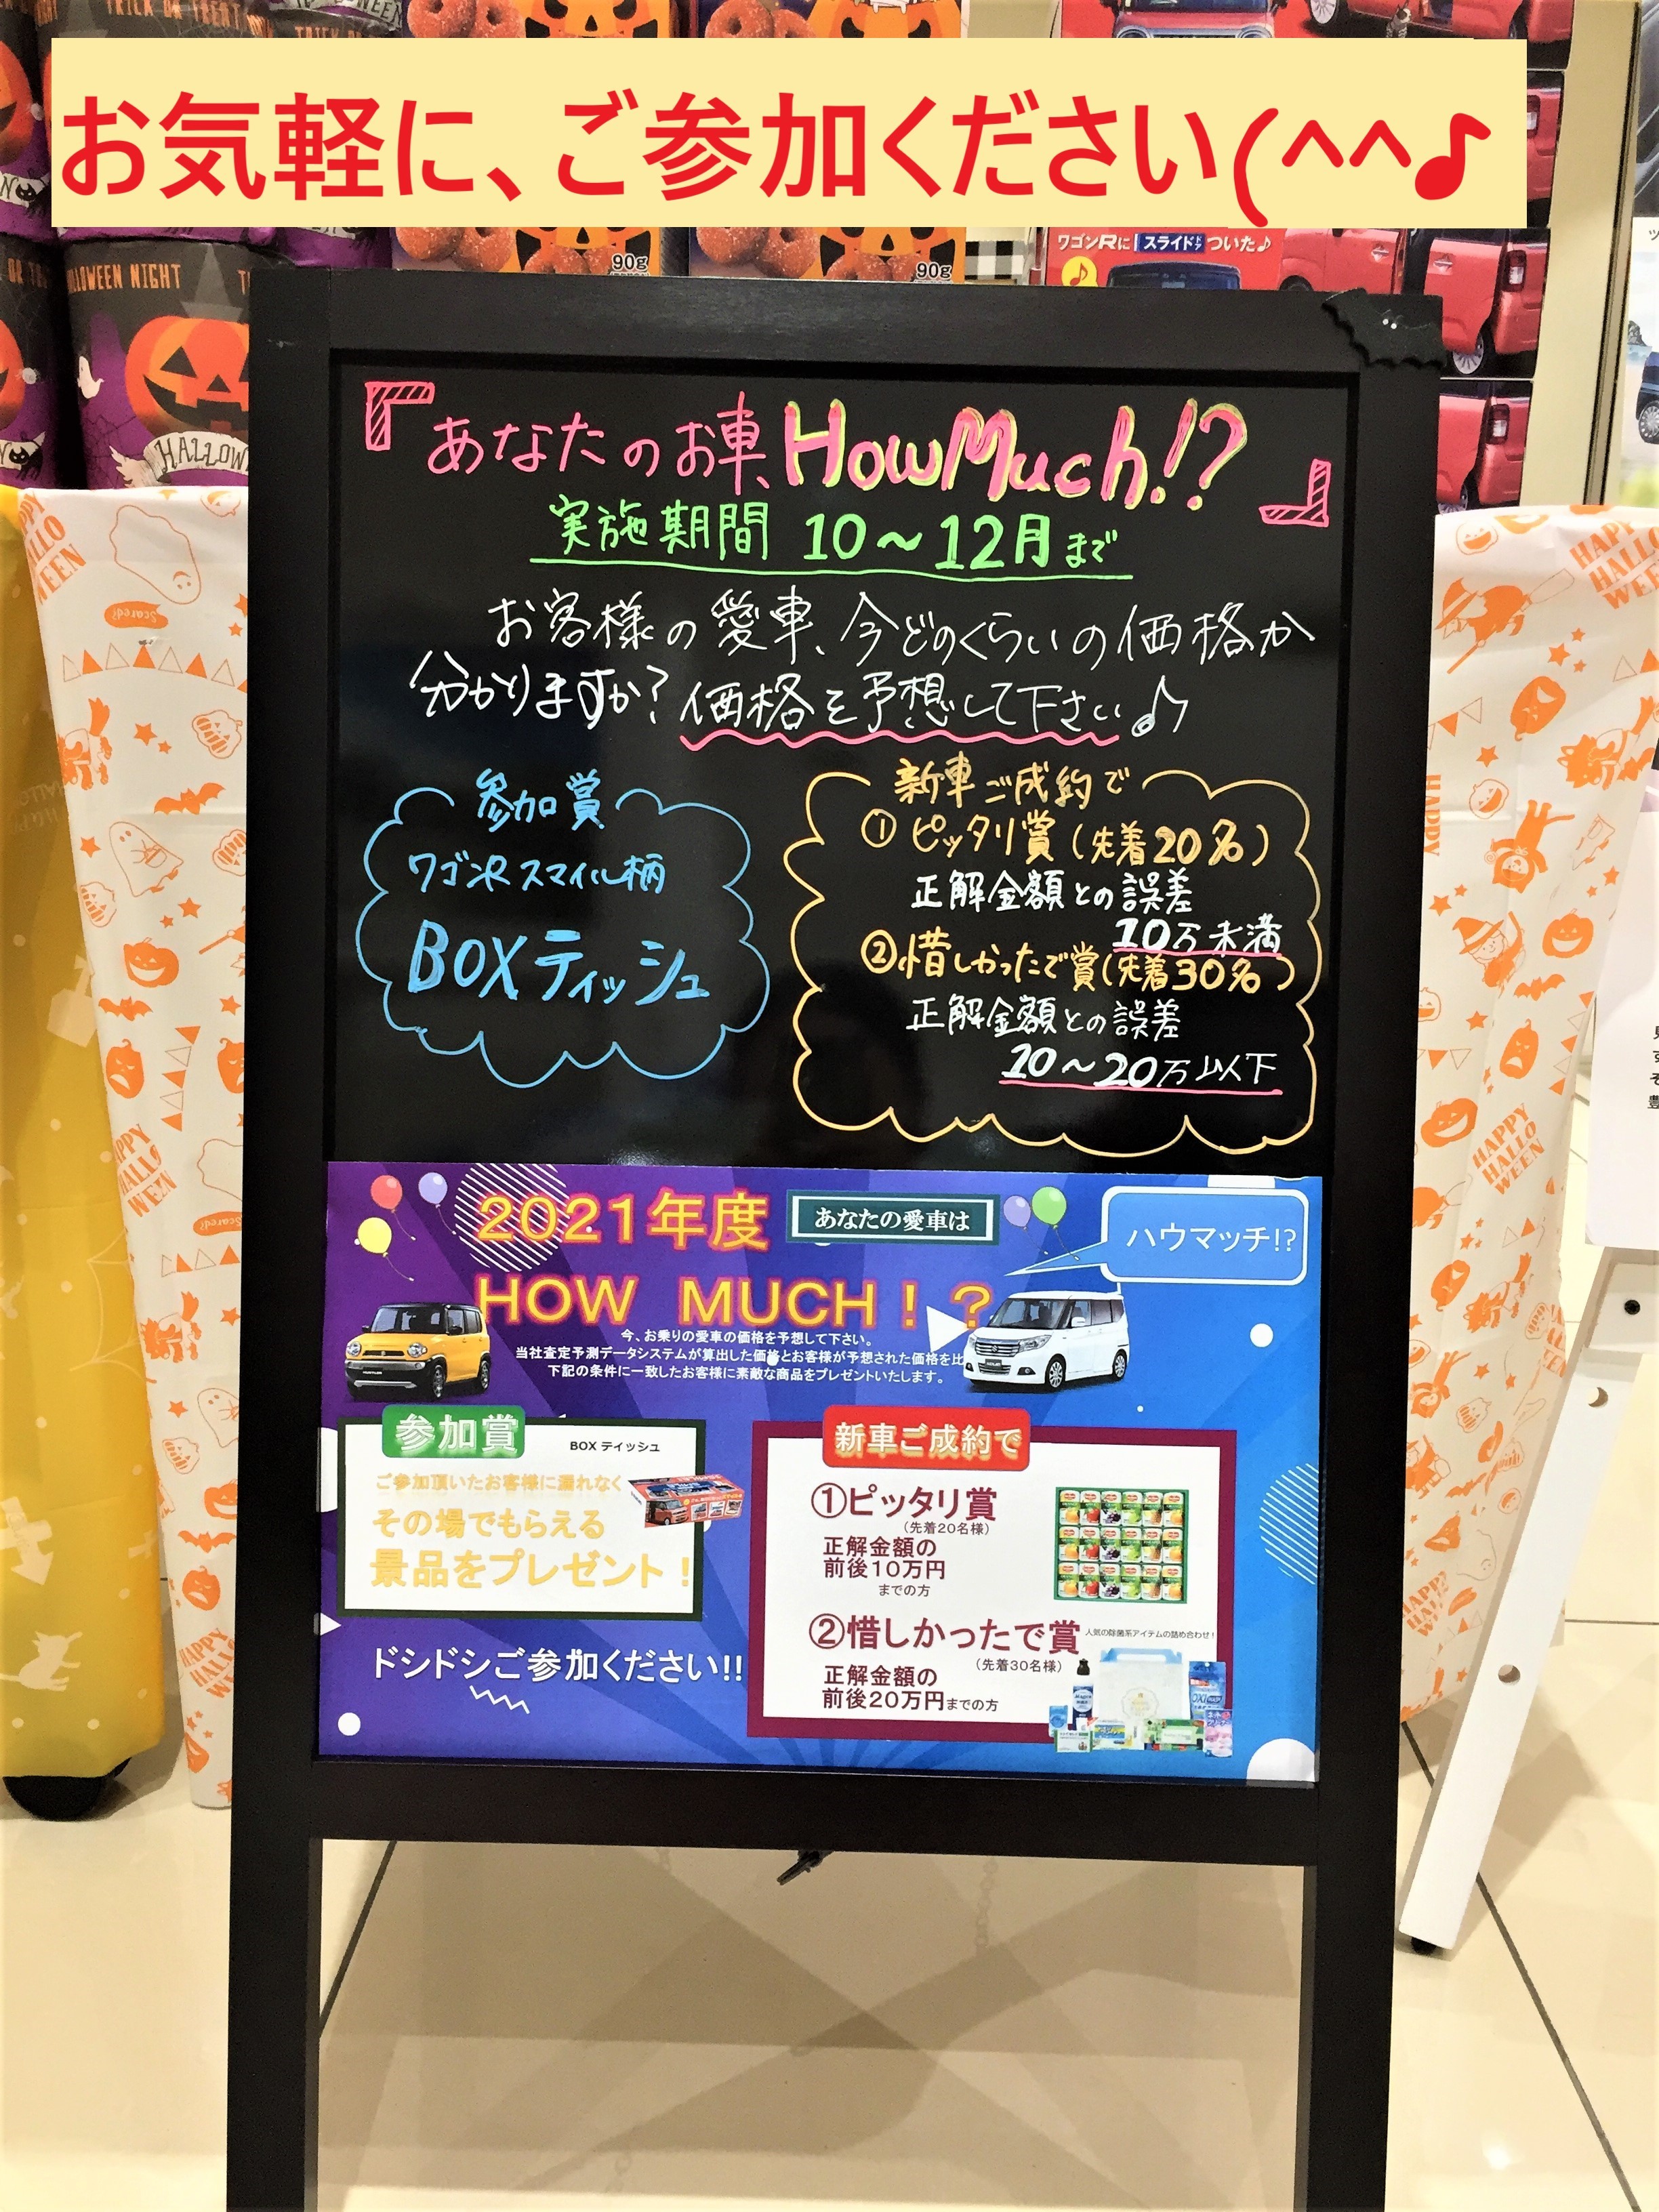 お気軽に、ご参加ください(^^♪
TRICK OR TREAT
90g
90g
ワゴンRに スライドドア ついた♪
HALLOWEEN NIGHT
『あなたのお車、HowMuch!?』
実施期間 10～12月まで
お客様の愛車、今どのくらいの価格か
分かりますか？価格を予想して下さい♪
参加賞
ワゴンRスマイル柄
BOXティッシュ
新車ご成約で
①ピッタリ賞(先着20名)
正解金額との誤差
10万未満
②惜しかったで賞(先着30名)
正解金額との誤差
10～20万以下
2021年度 あなたの愛車は
ハウマッチ!?
HOW MUCH！？
今、お乗りの愛車の価格を予想して下さい。
当社査定予測データシステムが算出した価格とお客様が予想された価格を比
下記の条件に一致したお客様に素敵な商品をプレゼントいたします。
参加賞
BOX ティッシュ
ご参加頂いたお客様に漏れなく
その場でもらえる
景品をプレゼント！
ドシドシご参加ください!!
新車ご成約で
①ピッタリ賞
(先着20名様)
正解金額の
前後10万円
までの方
②惜しかったで賞
人気の除菌系アイテムの詰め合わせ！
(先着30名様)
正解金額の
前後20万円までの方
HAPPY
HALLO
WEEN